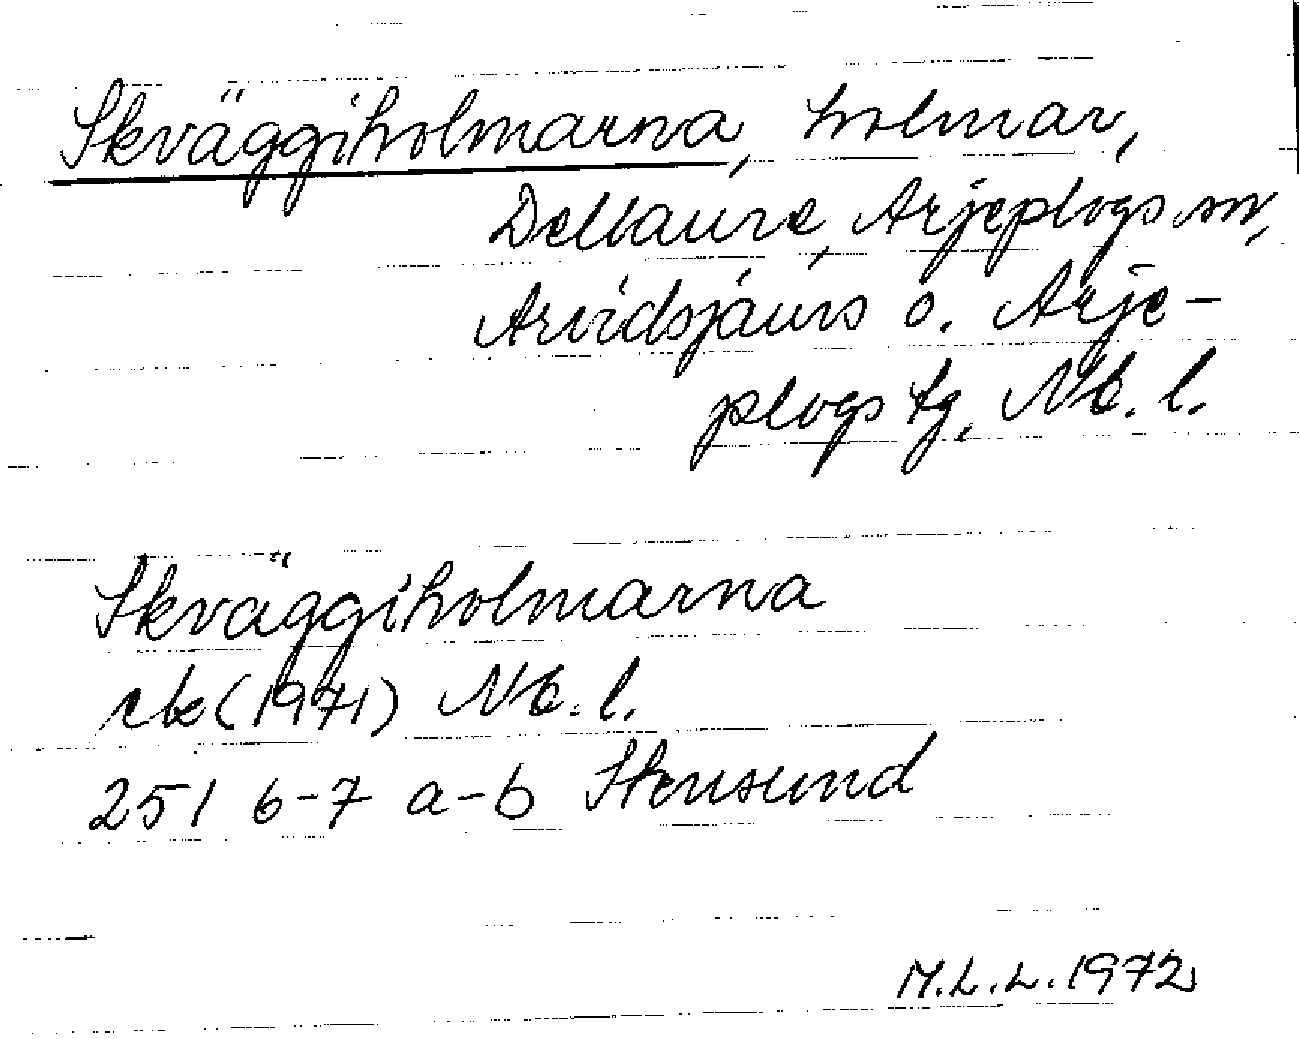 Skväggiholmarna, holmar,
Dellaure, Arjeplogs sn,
Arvidsjaurs o. Arje-
plogs tg, Nb. l.
Skväggiholmarna
rbk (1971) Nb. l.
251 6-7 a-b Stensund
M.L.L. 1972